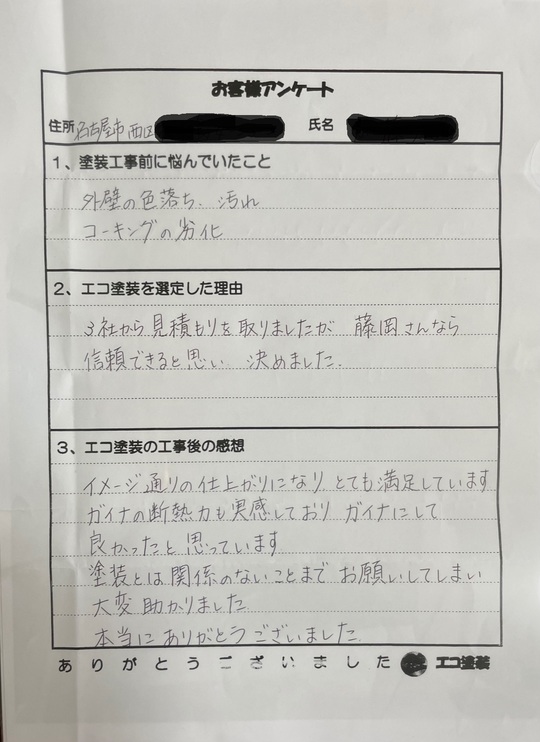 お客様アンケート
住所 名古屋市西区 氏名
1、塗装工事前に悩んでいたこと
外壁の色落ち、汚れ
コーキングの劣化
2、エコ塗装を選定した理由
3社から見積もりを取りましたが 藤岡さんなら
信頼できると思い 決めました。
3、エコ塗装の工事後の感想
イメージ通りの仕上がりになり とても満足しています
ガイナの断熱力も実感しており ガイナにして
良かったと思っています
塗装とは関係のないことまで お願いしてしまい
大変助かりました
本当にありがとうございました
ありがとうございました エコ塗装